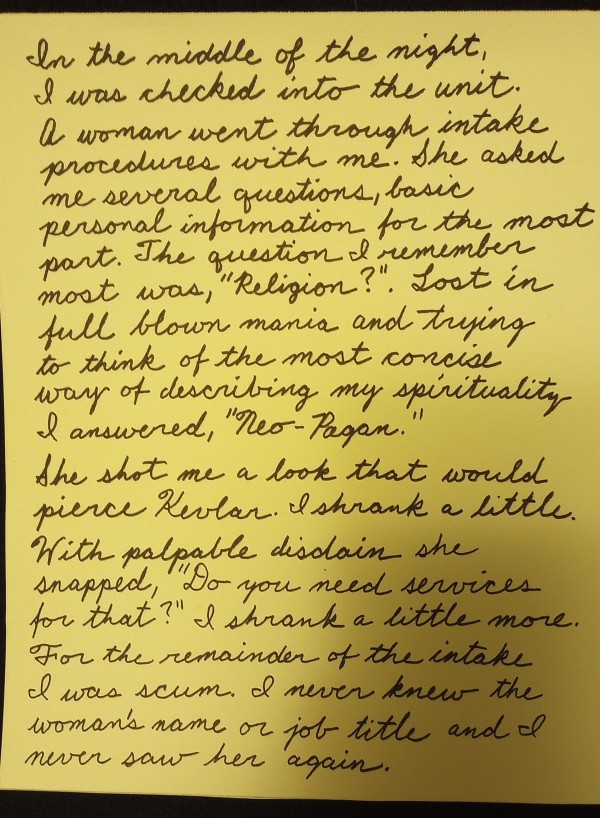 In the middle of the night,
I was checked into the unit.
A woman went through intake
procedures with me. She asked
me several questions, basic
personal information for the most
part. The question I remember
most was, "Religion?". Lost in
full blown mania and trying
to think of the most concise
way of describing my spirituality
I answered, "Neo-Pagan."
She shot me a look that would
pierce Kevlar. I shrank a little.
With palpable disdain she
snapped, "Do you need services
for that?" I shrank a little more.
For the remainder of the intake
I was scum. I never knew the
woman's name or job title and I
never saw her again.